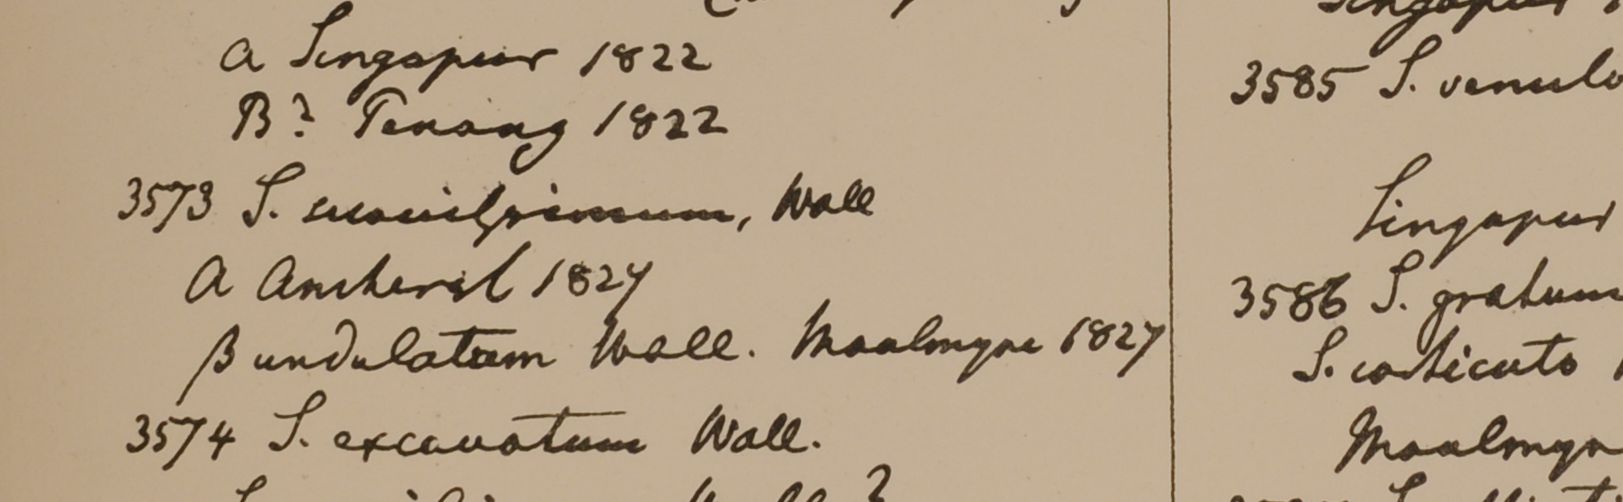 a Singapur 1822
B? Penang 1822
3573 S. suavissimum, Wall
a Amherst 1827
β undulatum Wall. Moalmyne 1827
3574 S. excavatum Wall.
Singapur
3585 S. venulo
Singapur
3586 S. gratum
S. corticato
Moalmyn